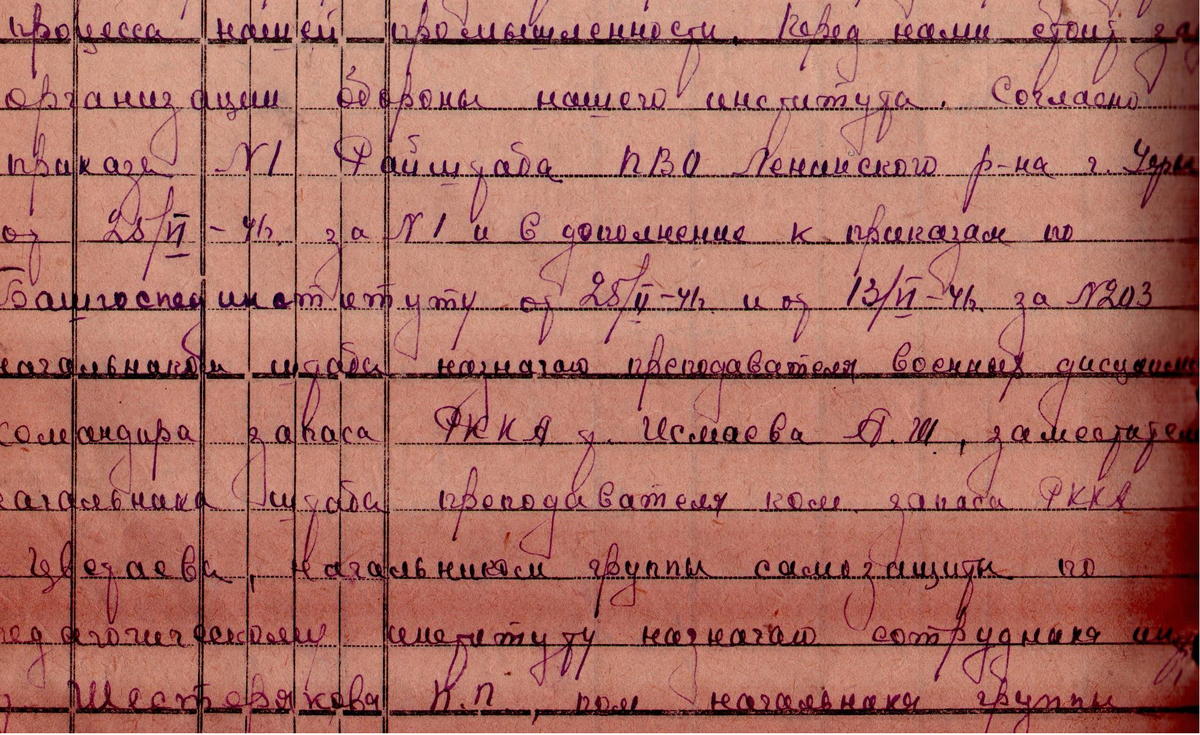 процесса нашей промышленности. Перед нами стоит за
организации обороны нашего института. Согласно
приказа N1 Райштаба ПВО Ленинского р-на г. Уфы
от 25/VI - 41г. за N1 и в дополнение к приказам по
Башгоспединституту от 25/VI-41г. и от 13/VI-41г. за N203
начальником штаба назначаю преподавателя военных дисципли
командира запаса РККА т. Исмаева А.Ш., заместителем
начальника штаба преподавателя ком. запаса РККА
Цветаева, начальником группы самозащиты по
педагогическому институту назначаю сотрудника инст
т. Шестерякова П.П., пом начальника группы